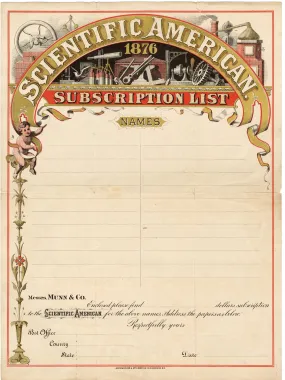 SCIENTIFIC AMERICAN.
1876
SUBSCRIPTION LIST
NAMES
Messrs. MUNN & CO.
Enclosed please find dollars subscription
to the SCIENTIFIC AMERICAN for the above names. Address the papers as below.
Respectfully yours
Post Office
County
State Date